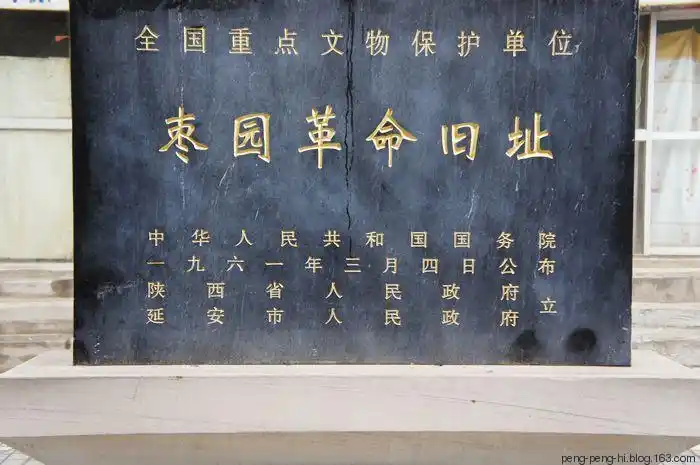 全国重点文物保护单位
枣园革命旧址
中华人民共和国国务院
一九六一年三月四日公布
陕西省人民政府
延安市人民政府 立
peng-peng-hi.blog.163.com